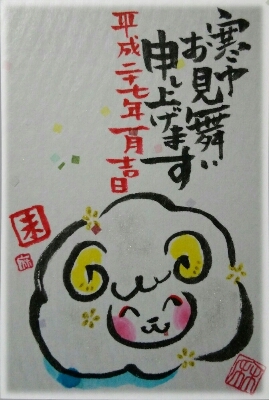 寒中
お見舞い
申し上げます
平成二十七年一月吉日